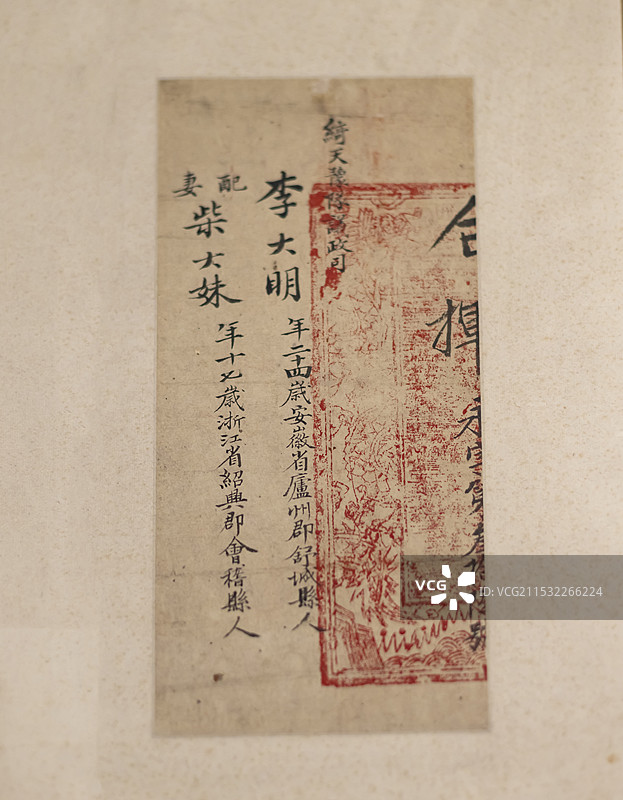 合揮
綺天豫隊
政司
李大明 年二十四歲安徽省廬州郡舒城縣人
配妻 柴大妹 年十七歲浙江省紹興郡會稽縣人
VCG
ID: VCG211532266224